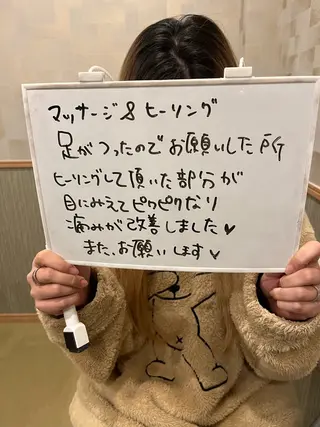 マッサージ&ヒーリング
足がつったのでお願いした所
ヒーリングして頂いた部分が
目にみえてピクピクなり
痛みが改善しました♥
また、お願いします♥